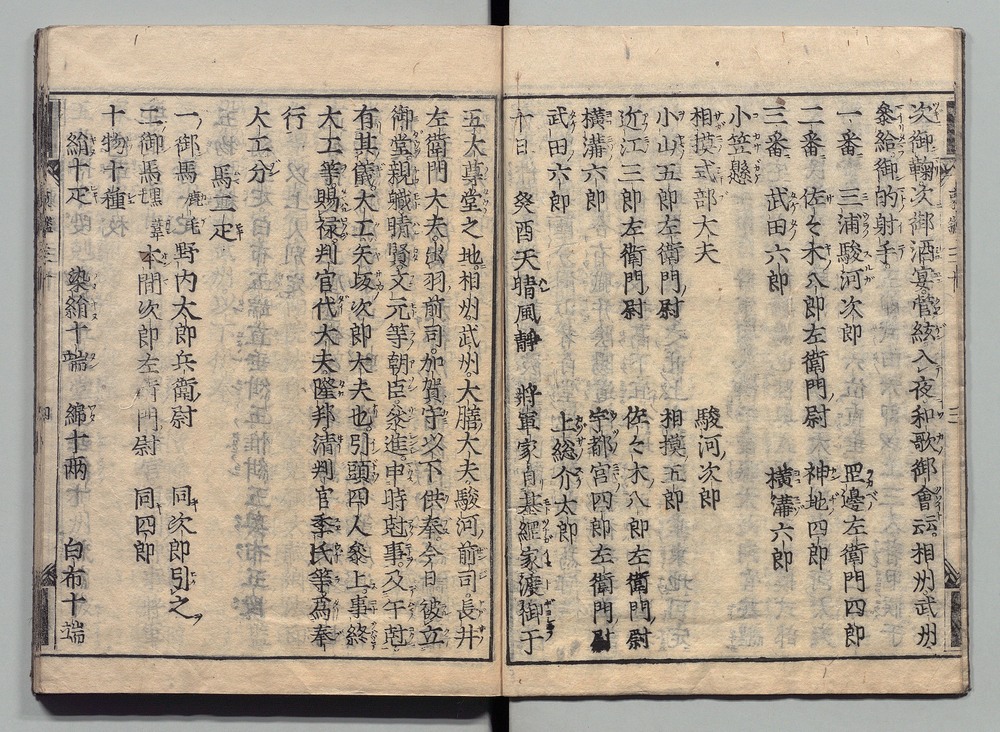 次御鞠次御酒宴管絃入夜和歌御會云云相州武州
参給御的射手
一番 三浦駿河次郎 罡邊左衛門四郎
二番 佐々木八郎左衛門尉 神地四郎
三番 武田六郎 横溝六郎
小笠懸
相摸式部大夫 駿河次郎
小山五郎左衛門尉 相摸五郎
近江三郎左衛門尉 佐々木八郎左衛門尉
横溝六郎 宇都宮四郎左衛門尉
武田六郎 上総介太郎
十日 癸酉天晴風静 將軍家自基綱家渡御于
五大尊堂之地相州武州大膳大夫駿河前司長井
左衛門大夫出羽前司加賀守以下供奉今日彼立
御堂親職晴賢文元等朝臣参進申時尅事及午尅
有其儀大工矢坂次郎大夫也引頭四人参上事終
大工等賜禄判官代大夫隆邦清判官季氏等為奉
行
大工分 馬二疋
一御馬 鹿毛 野内太郎兵衛尉 同次郎引之
二御馬 黒葦毛 本間次郎左衛門尉 同四郎
十物十種
絹十疋 染絹十端 綿十両 白布十端